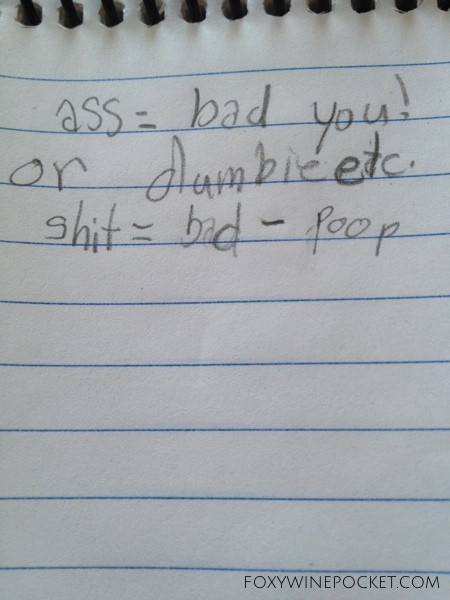 ass= bad you!
or dumbie etc.
shit= bad - poop
FOXYWINEPOCKET.COM